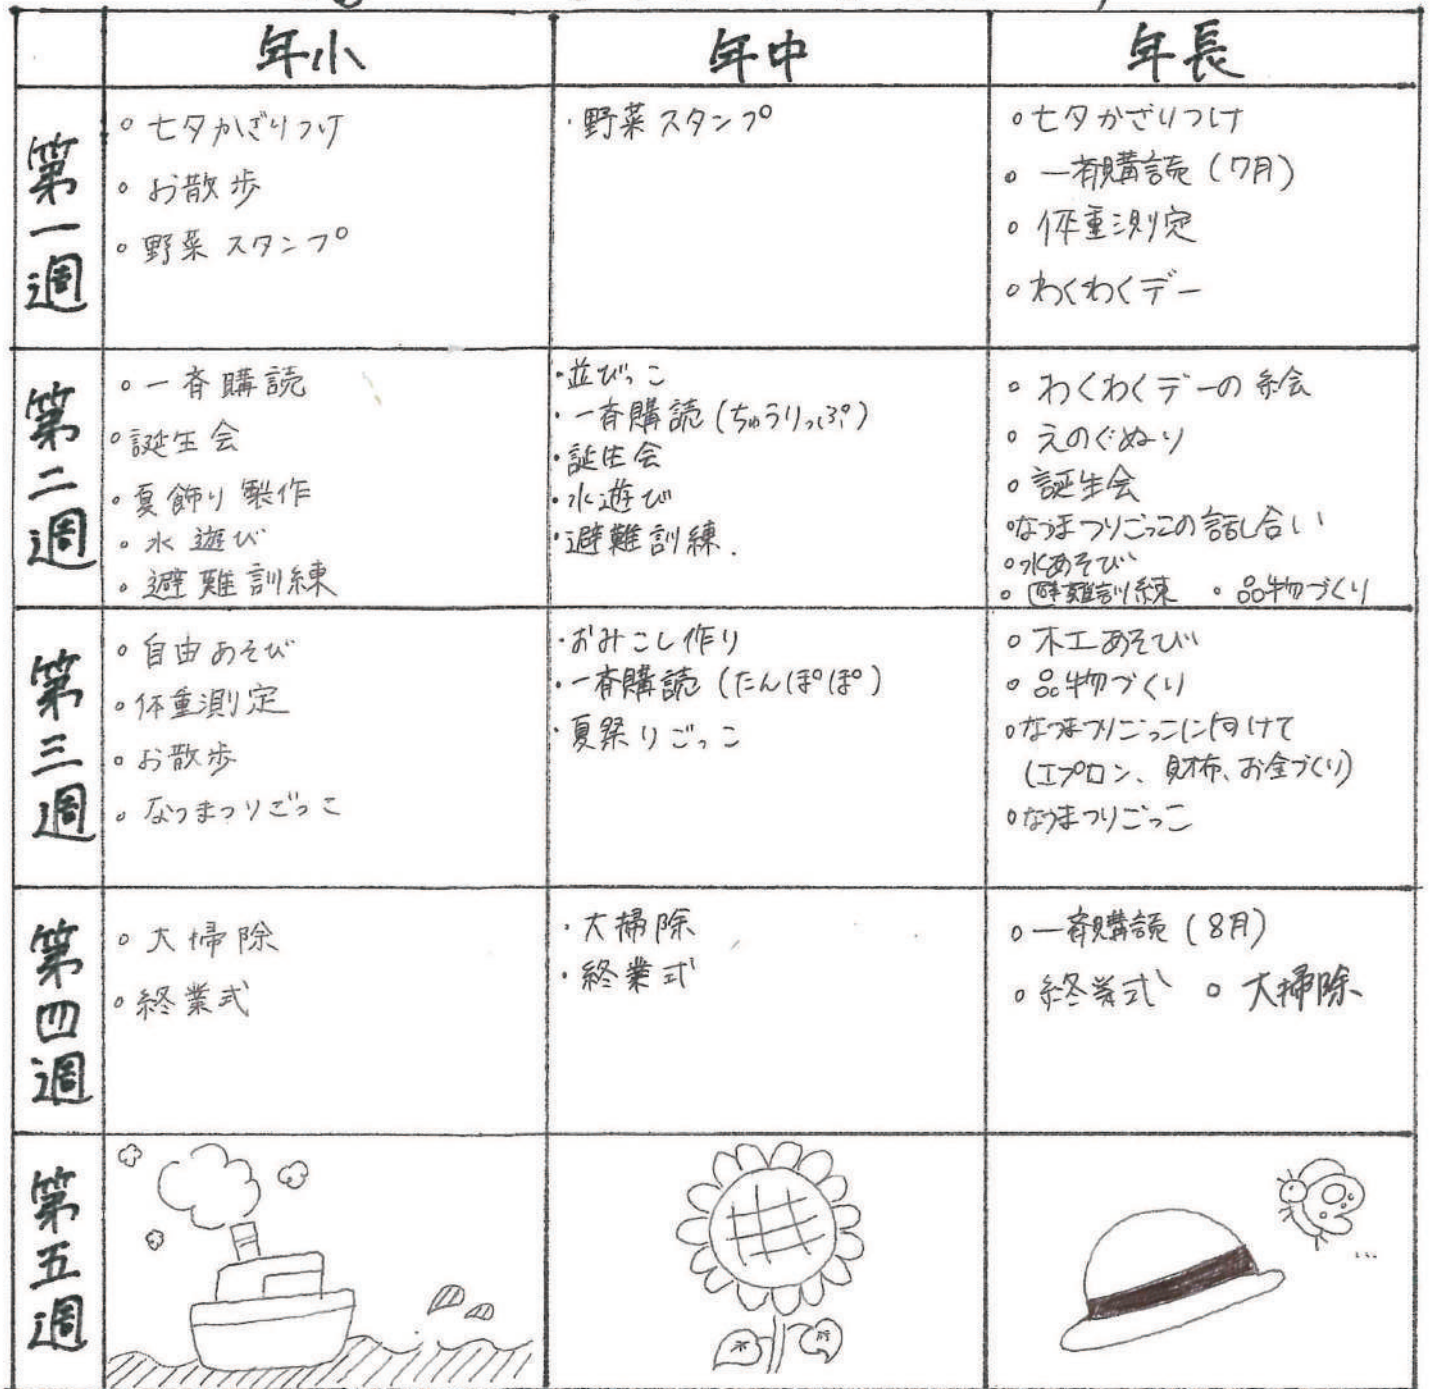 年小
年中
年長
第一週
。七夕かざりつけ
。お散歩
。野菜スタンプ
・野菜スタンプ
。七夕かざりつけ
。一斉購読(7月)
。体重測定
。わくわくデー
第二週
。一斉購読
。誕生会
。夏飾り製作
。水遊び
。避難訓練
・並びっこ
・一斉購読(ちゅうりっぷ)
・誕生会
・水遊び
・避難訓練.
。わくわくデーの絵
。えのぐぬり
。誕生会
。なつまつりごっこの話し合い
。水あそび
。避難訓練 。品物づくり
第三週
。自由あそび
。体重測定
。お散歩
。なつまつりごっこ
・おみこし作り
・一斉購読(たんぽぽ)
・夏祭りごっこ
。木工あそび
。品物づくり
。なつまつりごっこに向けて
(エプロン、財布、お金づくり)
。なつまつりごっこ
第四週
。大掃除
。終業式
・大掃除
・終業式
。一斉購読(8月)
。終業式 。大掃除
第五週